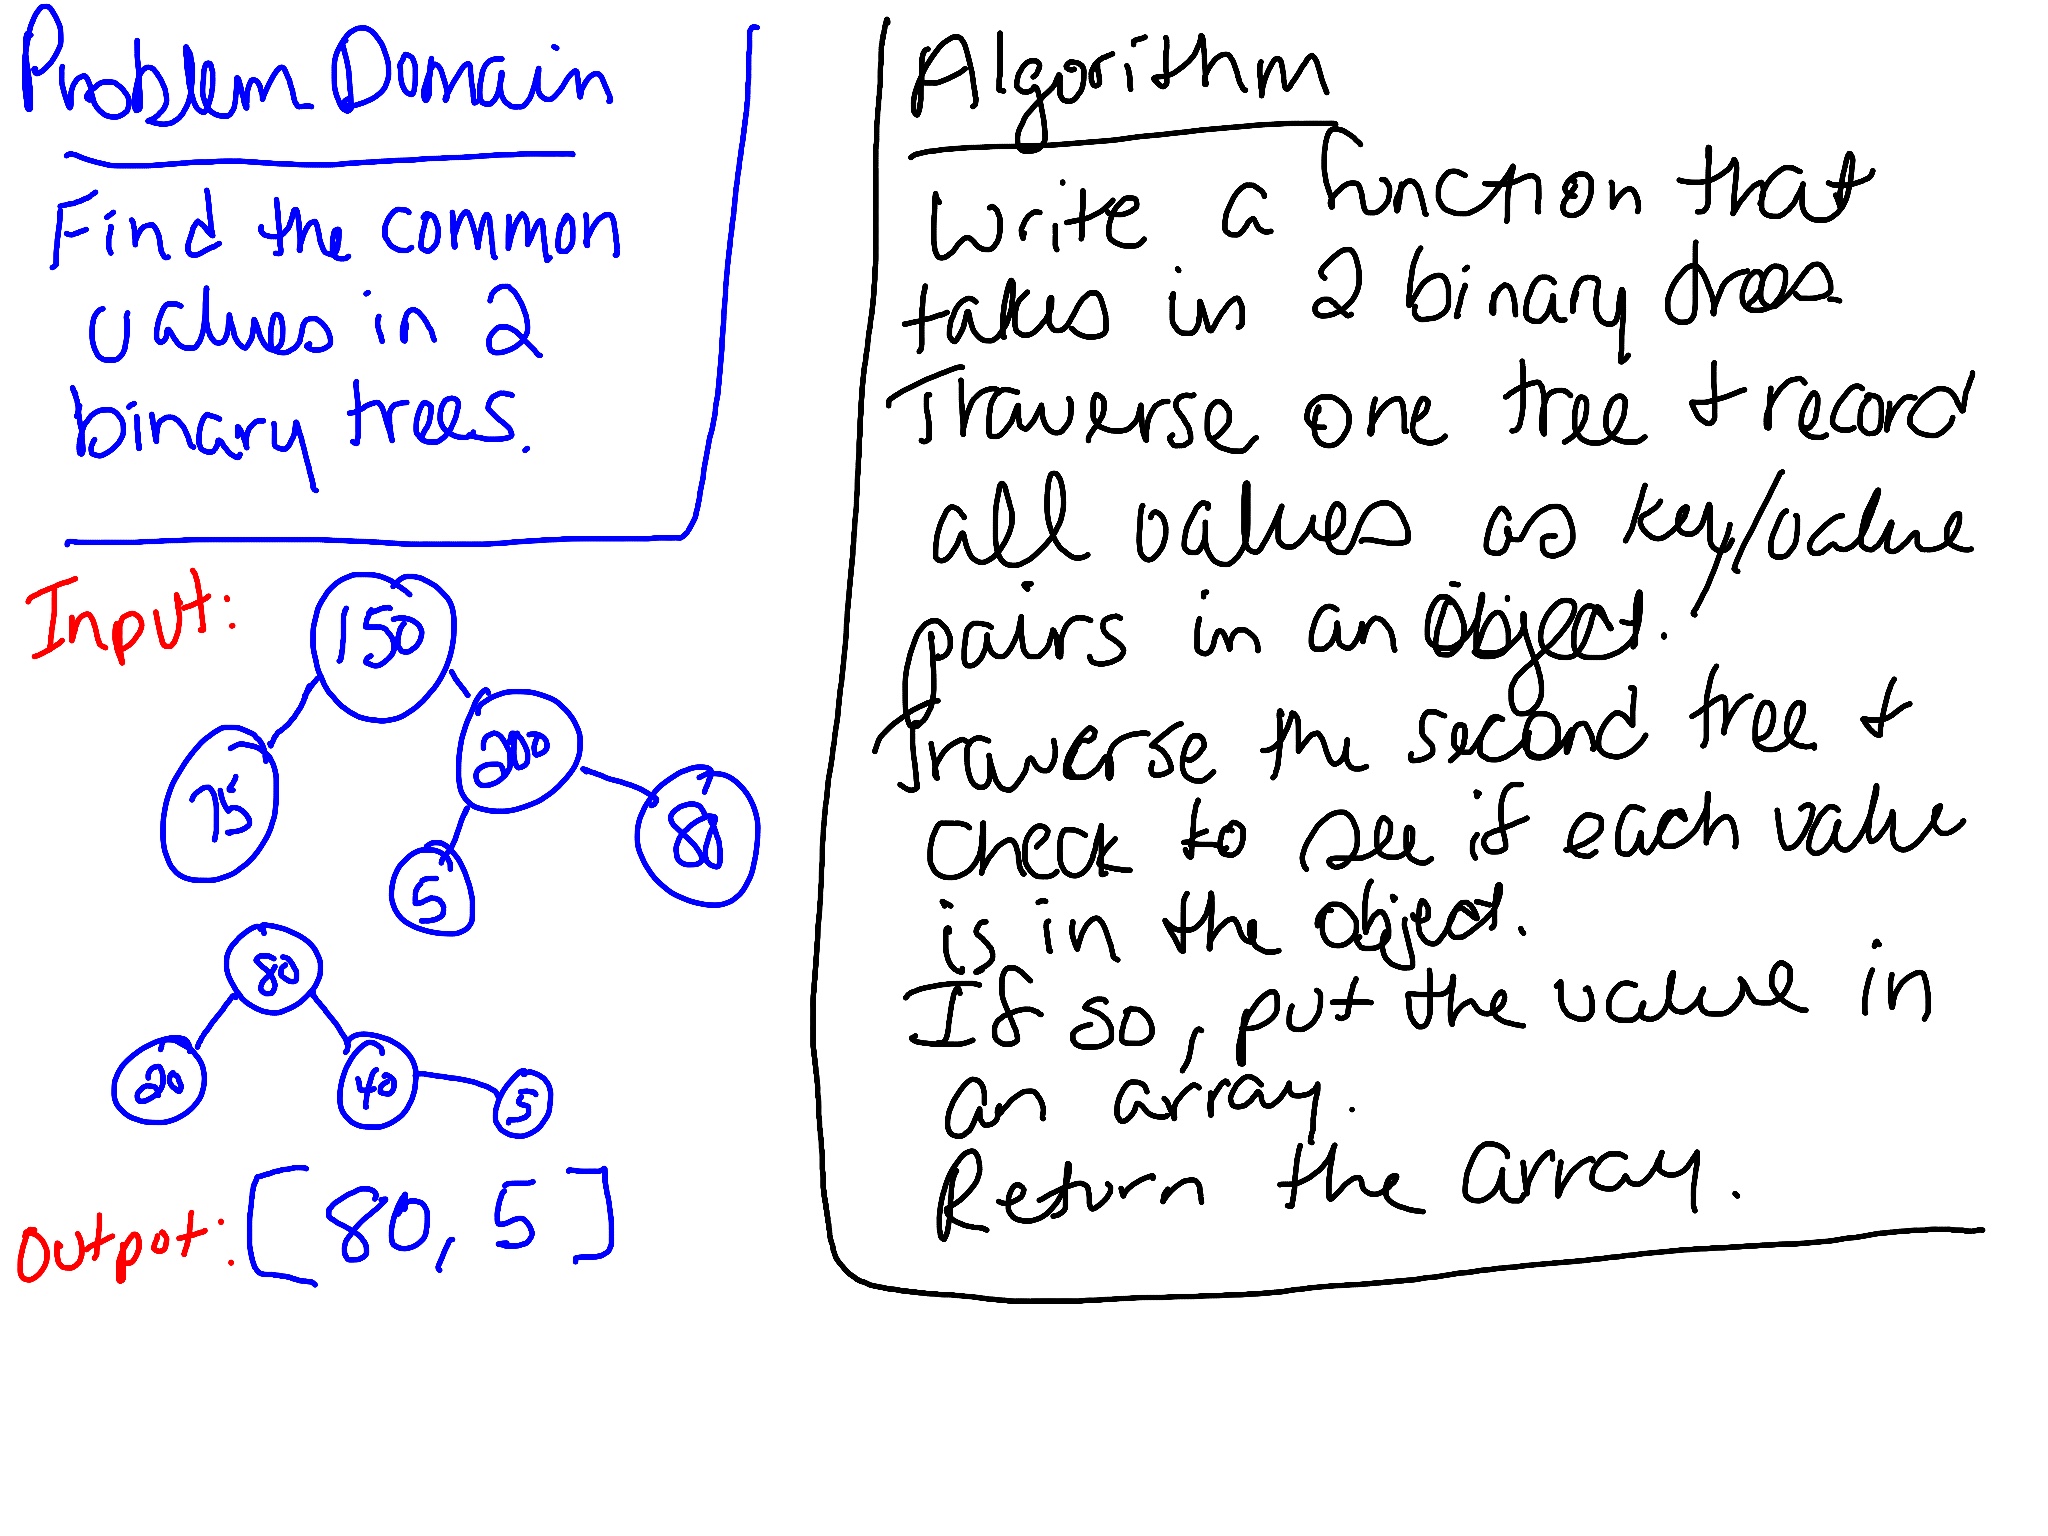 Problem Domain
Find the common
values in 2
binary trees.
Input:
150
75
200
5
80
80
20
40
5
Output: [80, 5]
Algorithm
Write a function that
takes in 2 binary trees
Traverse one tree + record
all values as key/value
pairs in an object.
Traverse the second tree +
check to see if each value
is in the object.
If so, put the value in
an array.
Return the array.